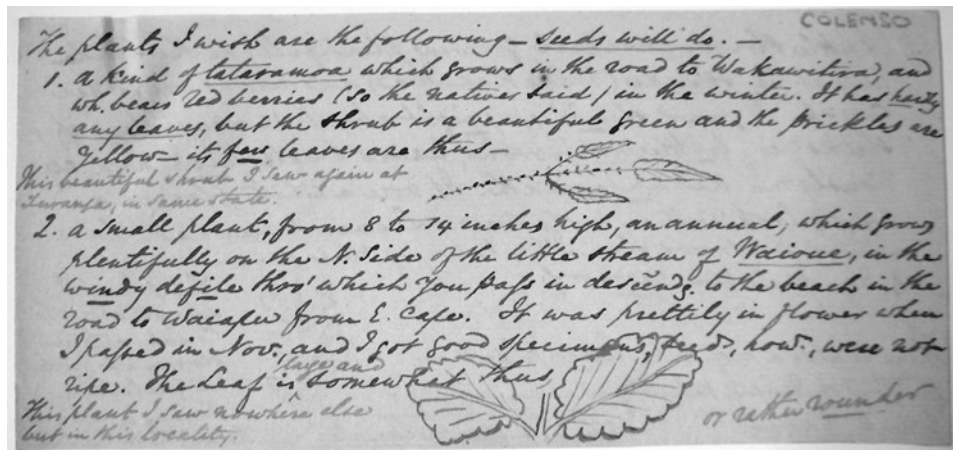 COLENSO
The plants I wish are the following – Seeds will do. –
1. a kind of tataramoa which grows in the road to Wakawitira, and
wh. bears red berries (so the natives said) in the winter. It has hardly
any leaves, but the shrub is a beautiful green and the prickles are
yellow – its few leaves are thus –
This beautiful shrub I saw again at
Turanga, in same state.
2. a small plant, from 8 to 14 inches high, an annual, which grows
plentifully on the N. side of the little stream of Waioue, in the
windy defile thro' which you pass in descendg. to the beach in the
road to Waiapu from E. Cape. It was prettily in flower when
I passed in Novr., and I got good specimens, seed, howr., were not
ripe. The Leaf is large and somewhat thus
This plant I saw nowhere else
but in this locality.
or rather rounder